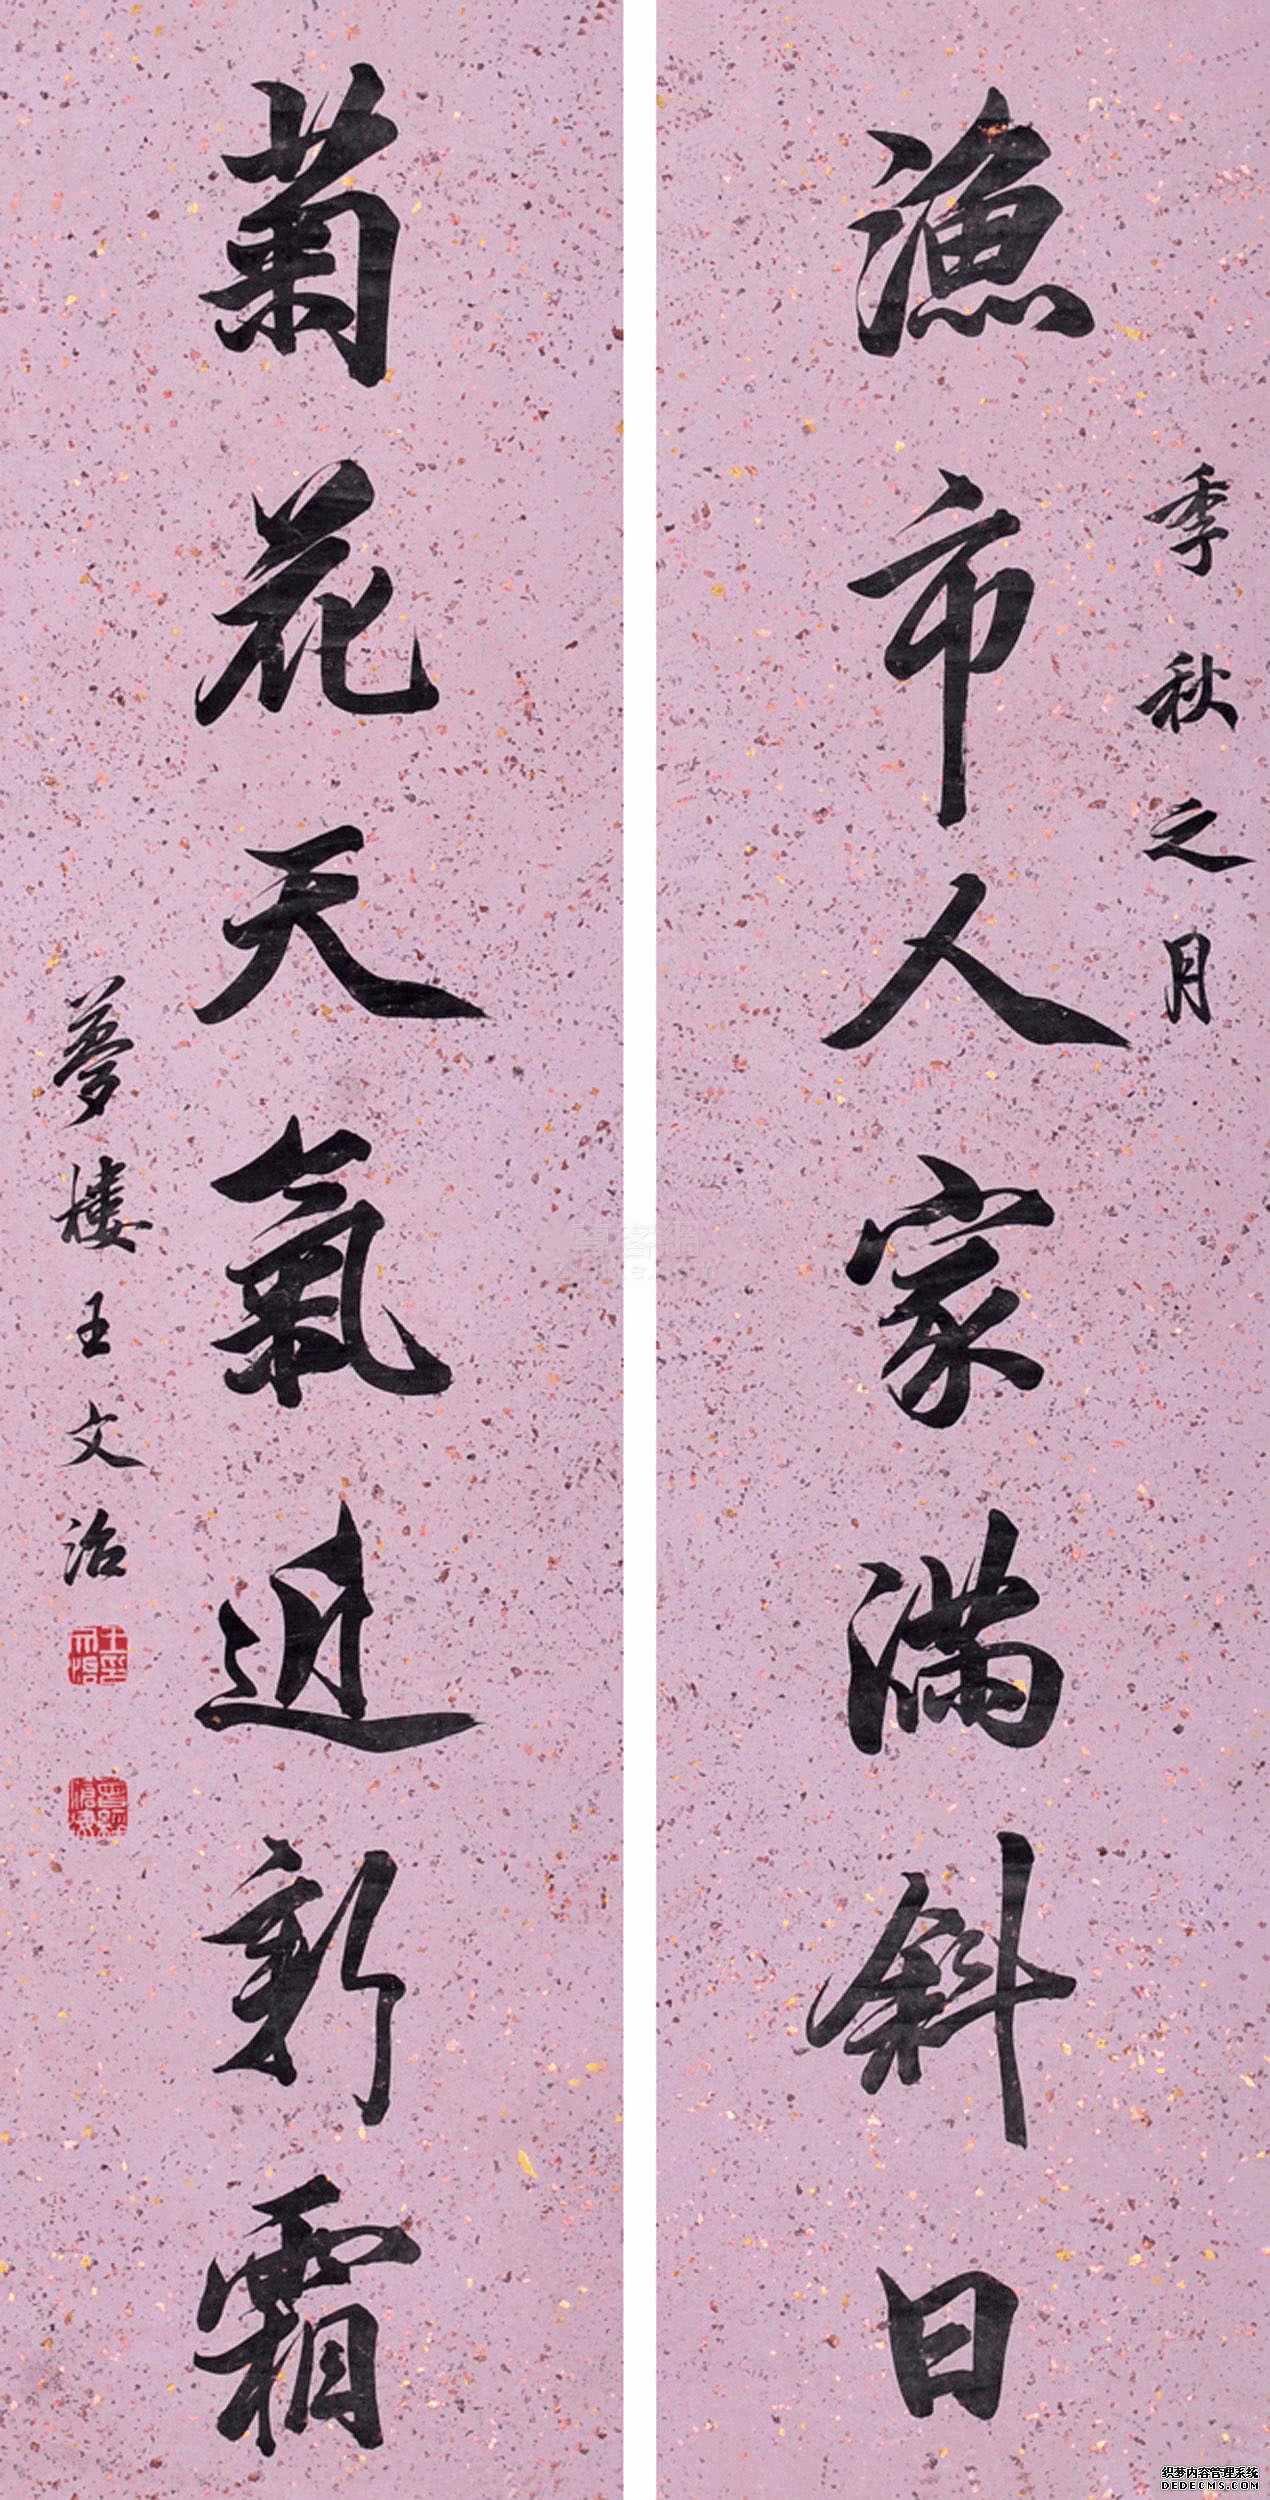 季秋之月
漁市人家满斜日
菊花天氣近新霜
夢樓王文治
織梦内容管理系统
DEDECMS.COM